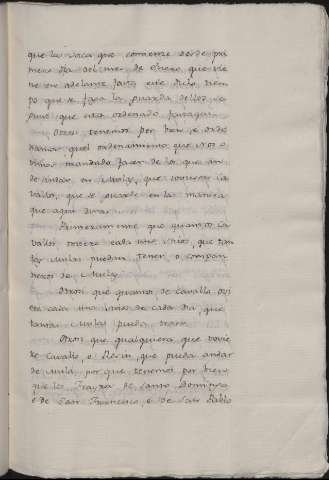 que la saca que comienze desde pri
mero dia del mes de Enero, que vie
ne en adelante fasta este dicho tiem
po que se faga la guarda dellos, se
gund que está ordenado
Otrosi tenemos por bien, e orde
namos quel ordenamiento que Nos o
vimos mandado facer de los que an
de andar en Mulas, que tovieren ca
vallos, que se guarde en la manera
que aqui dirá
Primeramente que quantos ca
vallos toviere cada uno suios, que tan
tas mulas puedan tener, o compan
de Mulas
Otrosi que quantos de cavallo
cada uno de cada dia, que
tantas Mulas pueda traer
Otrosi que qualquiera que tovie
re Cavallo, e que pueda andar
de Mula, porque tenemos por bien
que los Frayres de Santo Domingo
e de San Francisco, e de San Pablo